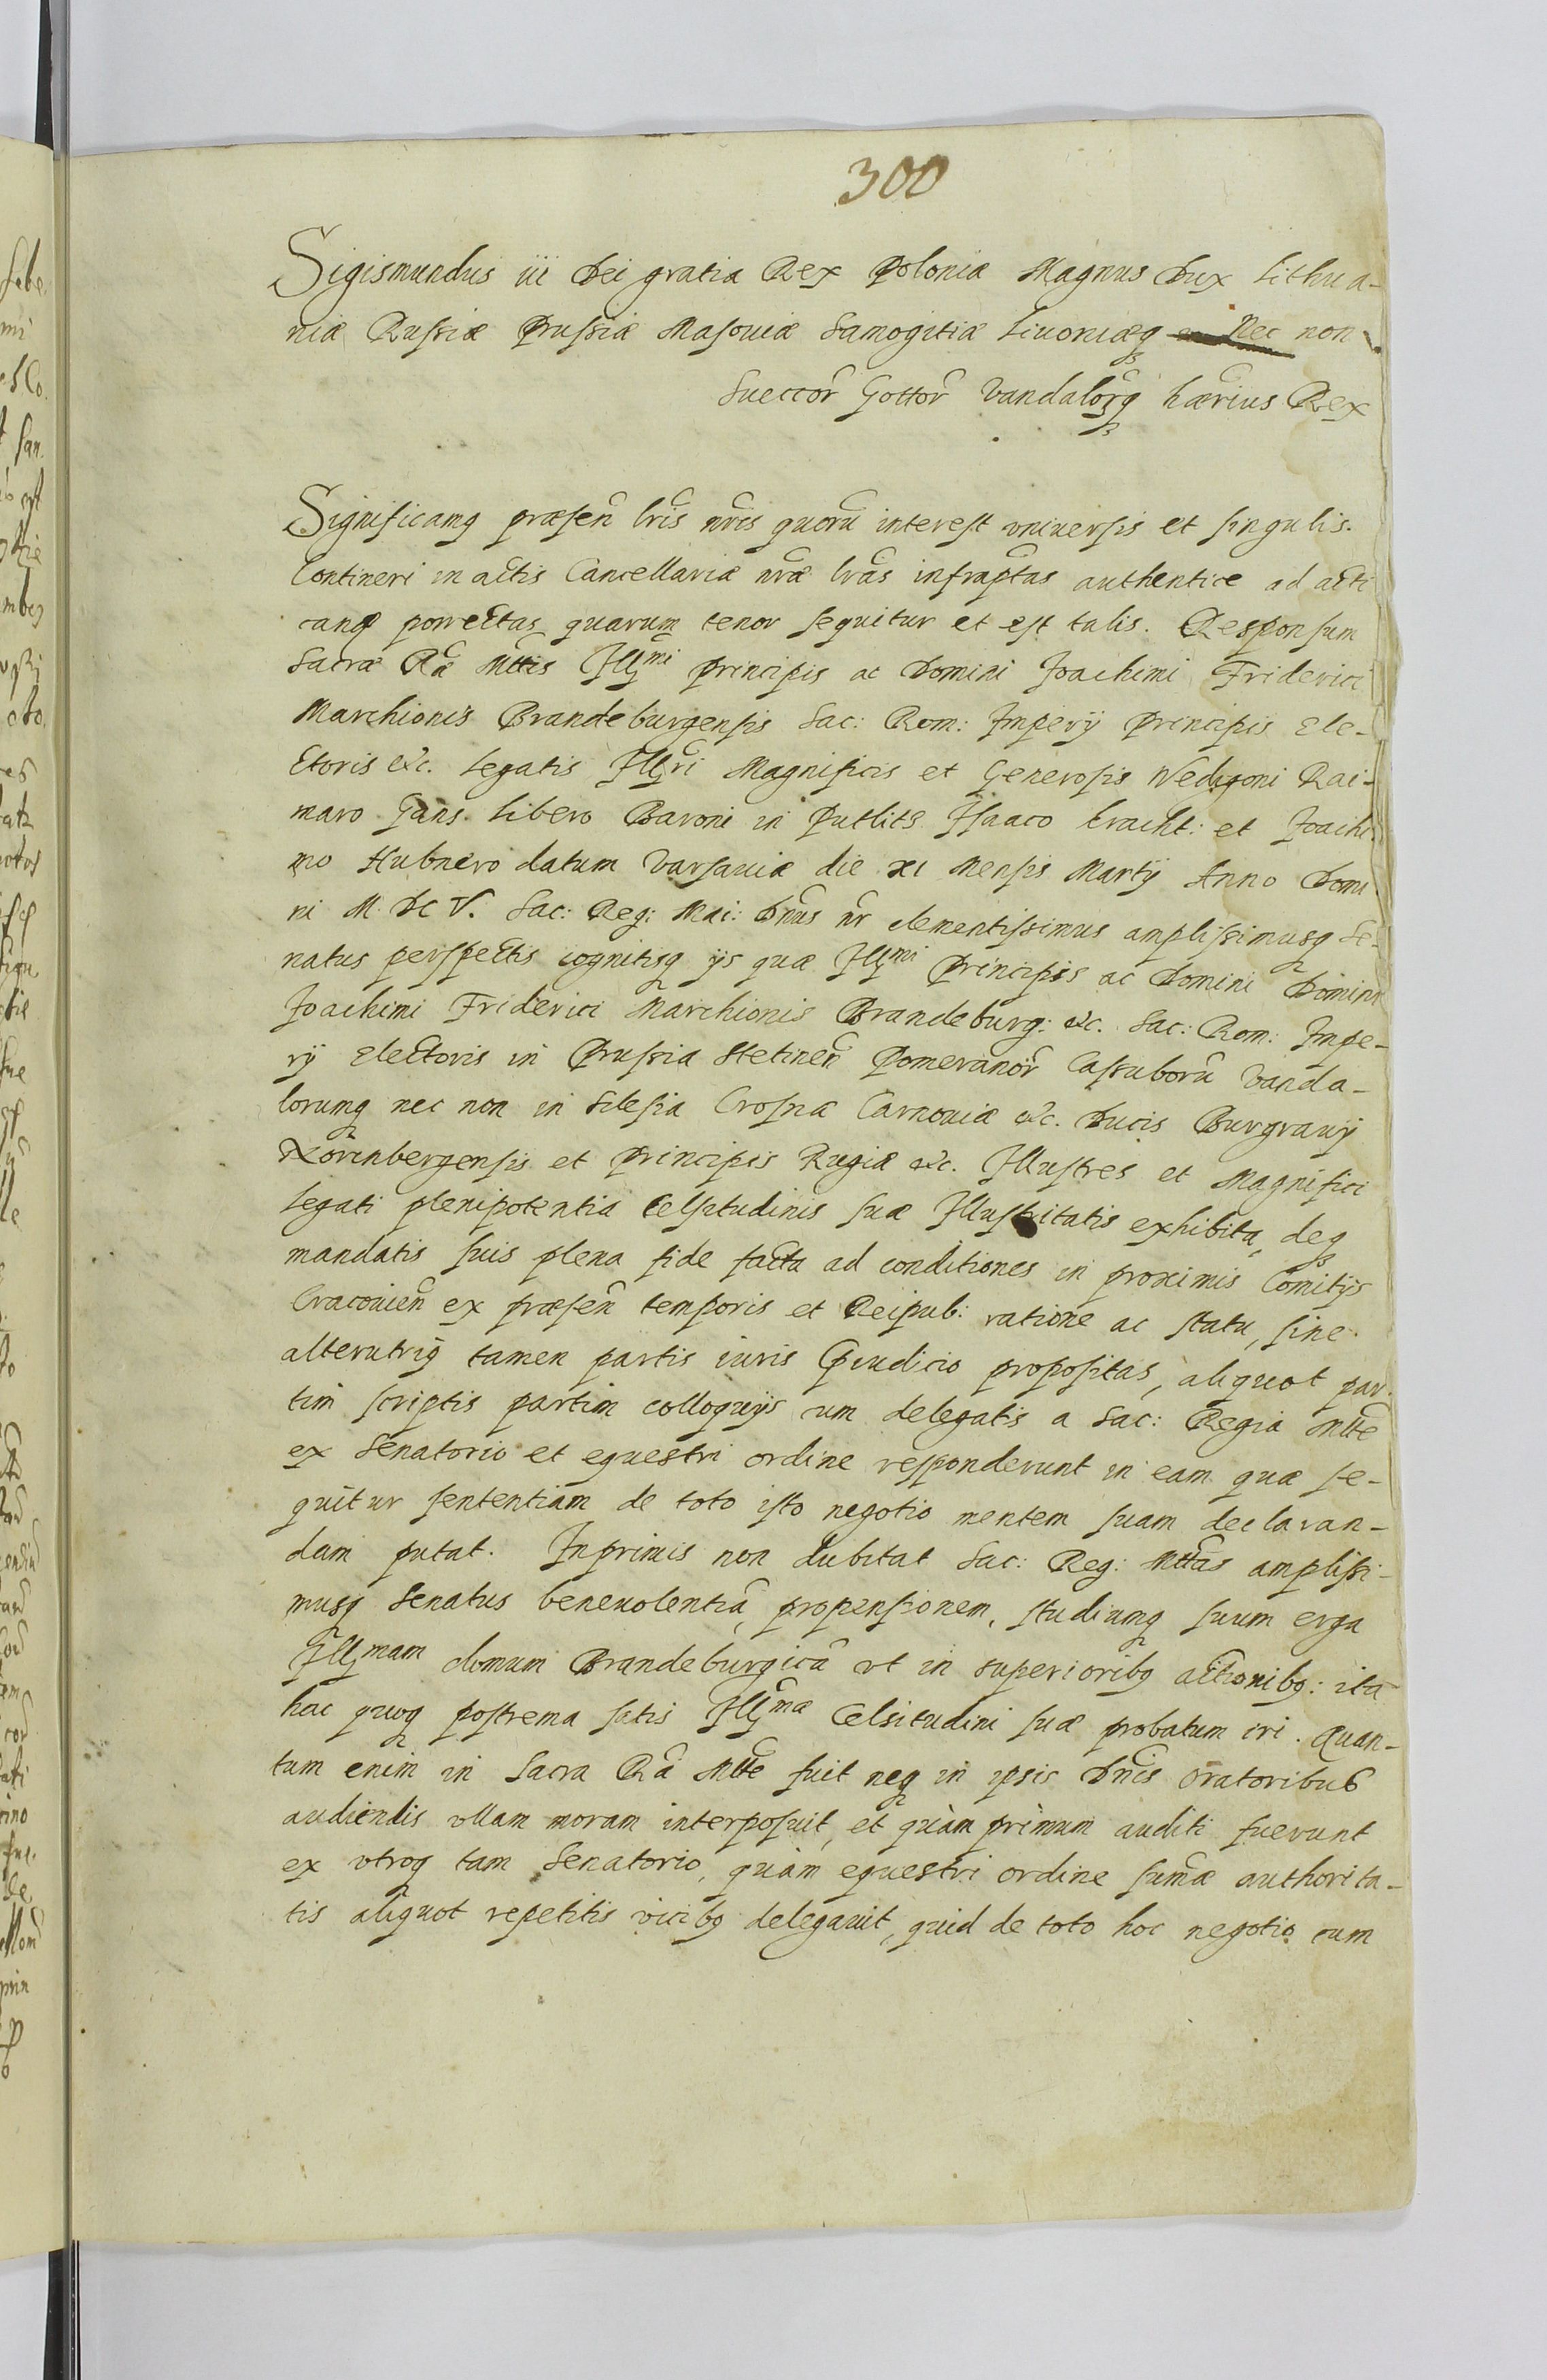 300
Sigismundus iii Dei gratia Rex Poloniæ Magnus Dux Lithua-
niæ Russiæ Prussiæ Masoviæ Samogitiæ Livoniæq Nec non
Sueccor Gottor Vandalorq hærius Rex
Significamq præsen lris nris quoru interest vniversis et singulis.
Contineri in actis Cancellariæ nræ lras infraptas authentice ad acti
canq porrectas quarum tenor sequitur et est talis. Responsum
Sacræ Ræ Mttis Illmi Principis ac Domini Joachimi Friderici
Marchionis Brandeburgensis Sac: Rom: Imperij Principis Ele-
ctoris etc. Legatis Illri Magnificis et Generosis Wedigoni Rai-
maro Gans Libero Baroni in Putlits Isaaco Kracht: et Joachi-
mo Hubnero datum Varsaviæ die xi Mensis Martij Anno Domi
ni M. DC V. Sac: Reg: Mai: Dnus nr clementissimus amplissimusq Se-
natus perspectis cognitisq ijs quæ Illmi Principis ac Domini Domini
Joachimi Friderici Marchionis Brandeburg: etc. Sac: Rom: Impe-
rij Electoris in Prussia Stetinen Pomeranor Cassuboru Vanda-
lorumq nec non in Silesia Crosnæ Carnoviæ etc. Ducis Burgravij
Norinbergensis et Principis Rugiæ etc. Illustres et Magnifici
Legati plenipotentia Celsitudinis suæ Illustritatis exhibita, deq
mandatis suis plena fide facta ad conditiones in proximis Comitijs
Cracovien ex præsen temporis et Reipub: ratione ac statu, sine
alterutriq tamen partis iuris Præiudicio propositas, aliquot par-
tim scriptis partim colloquijs cum delegatis a Sac: Regia Mtte
ex Senatorio et equestri ordine responderunt in eam quæ se-
quitur sententiam de toto isto negotio mentem suam declaran-
dam putat. Inprimis non dubitat Sac: Reg: Mttas amplissi-
musq Senatus benevolentia, propensionem, studiumq suum erga
Illmam domum Brandeburgica vt in superioribq actionibq: ita
hac quoq postrema satis Illmæ Celsitudini suæ probatum iri. Quan-
tum enim in Sacra Ra Mtte fuit neq in ipsis Dnis oratoribus
audiendis vllam moram interposuit, et quàm primum auditi fuerunt
ex vtroq tam Senatorio, quàm equestri ordine sumæ authorita-
tis aliquot repetitis vicibq delegavit, quid de toto hoc negotio cum